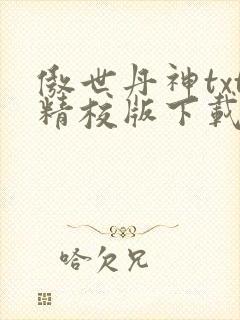 傲世丹神txt
精校版下载
哈欠兄